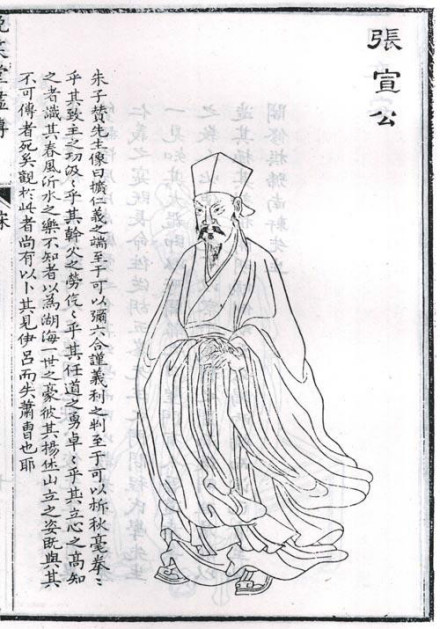 張宣公
朱子贊先生像曰擴仁義之端至于可以彌六合謹義利之判至于可以析秋毫拳〻
乎其致主之切汲〻乎其幹父之勞仡〻乎其任道之勇卓〻乎其立心之高知
之者識其春風沂水之樂不知者以為湖海一世之豪彼其揚休山立之姿既與其
不可傳者死矣觀於此者尚有以卜其見伊呂而失蕭曹也耶